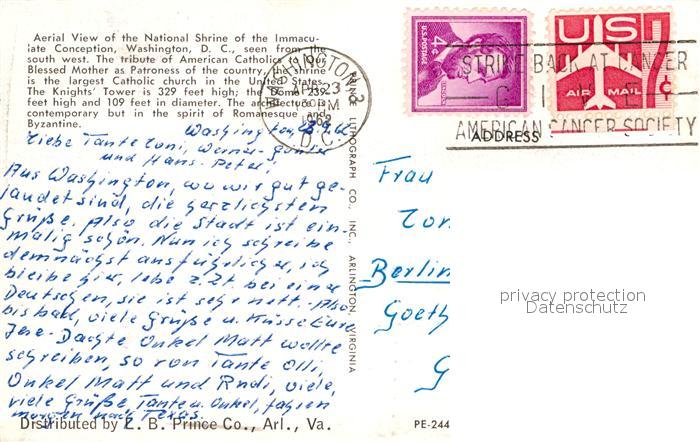 Aerial View of the National Shrine of the Immacu-
late Conception, Washington, D. C., seen from the
south west. The tribute of American Catholics to the
Blessed Mother as Patroness of the country, the shrine
is the largest Catholic church in the United States.
The Knights' Tower is 329 feet high; the Dome 239
feet high and 109 feet in diameter. The architecture is
contemporary but in the spirit of Romanesque and
Byzantine.
Washington, 23.4.62
Liebe Tante Toni, Werner-Günter
und Hans-Peter,
Aus Washington, wo wir gut ge-
landet sind, die herzlichsten
Grüße. Also die Stadt ist ein-
malig schön. Nun ich schreibe
demnächst ausführlicher, ich
bleibe hier, lebe z.Zt. bei einer
Deutschen, sie ist sehr nett. Also
bis bald, viele Grüße u. Küsse Eure
Dachte Onkel Matt wollte
schreiben, so von Tante Olli,
Onkel Matt und Rudi, viele,
viele Grüße Tante u. Onkel, fahren
morgen nach Texas.
Distributed by E. B. Prince Co., Arl., Va.
PRINCE LITHOGRAPH CO., INC., ARLINGTON, VIRGINIA
WASHINGTON
APR 23
PM
1962
D.C.
4¢
U.S. POSTAGE
US
AIR MAIL
7¢
STRIKE BACK AT CANCER
GIVE
AMERICAN CANCER SOCIETY
ADDRESS
Frau
Ton
Berlin
Goeth
G
privacy protection
Datenschutz
PE-244